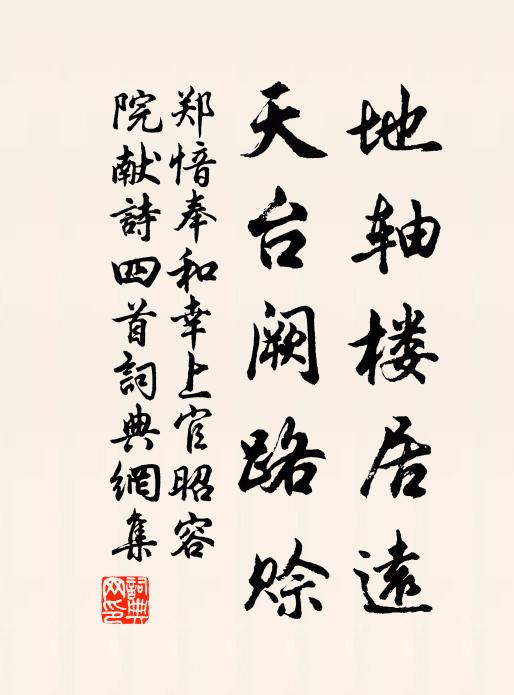 地轴楼居遠
天台阙路赊
郑愔奉和幸上官昭容
院献詩四首詞典網集
詞典網印